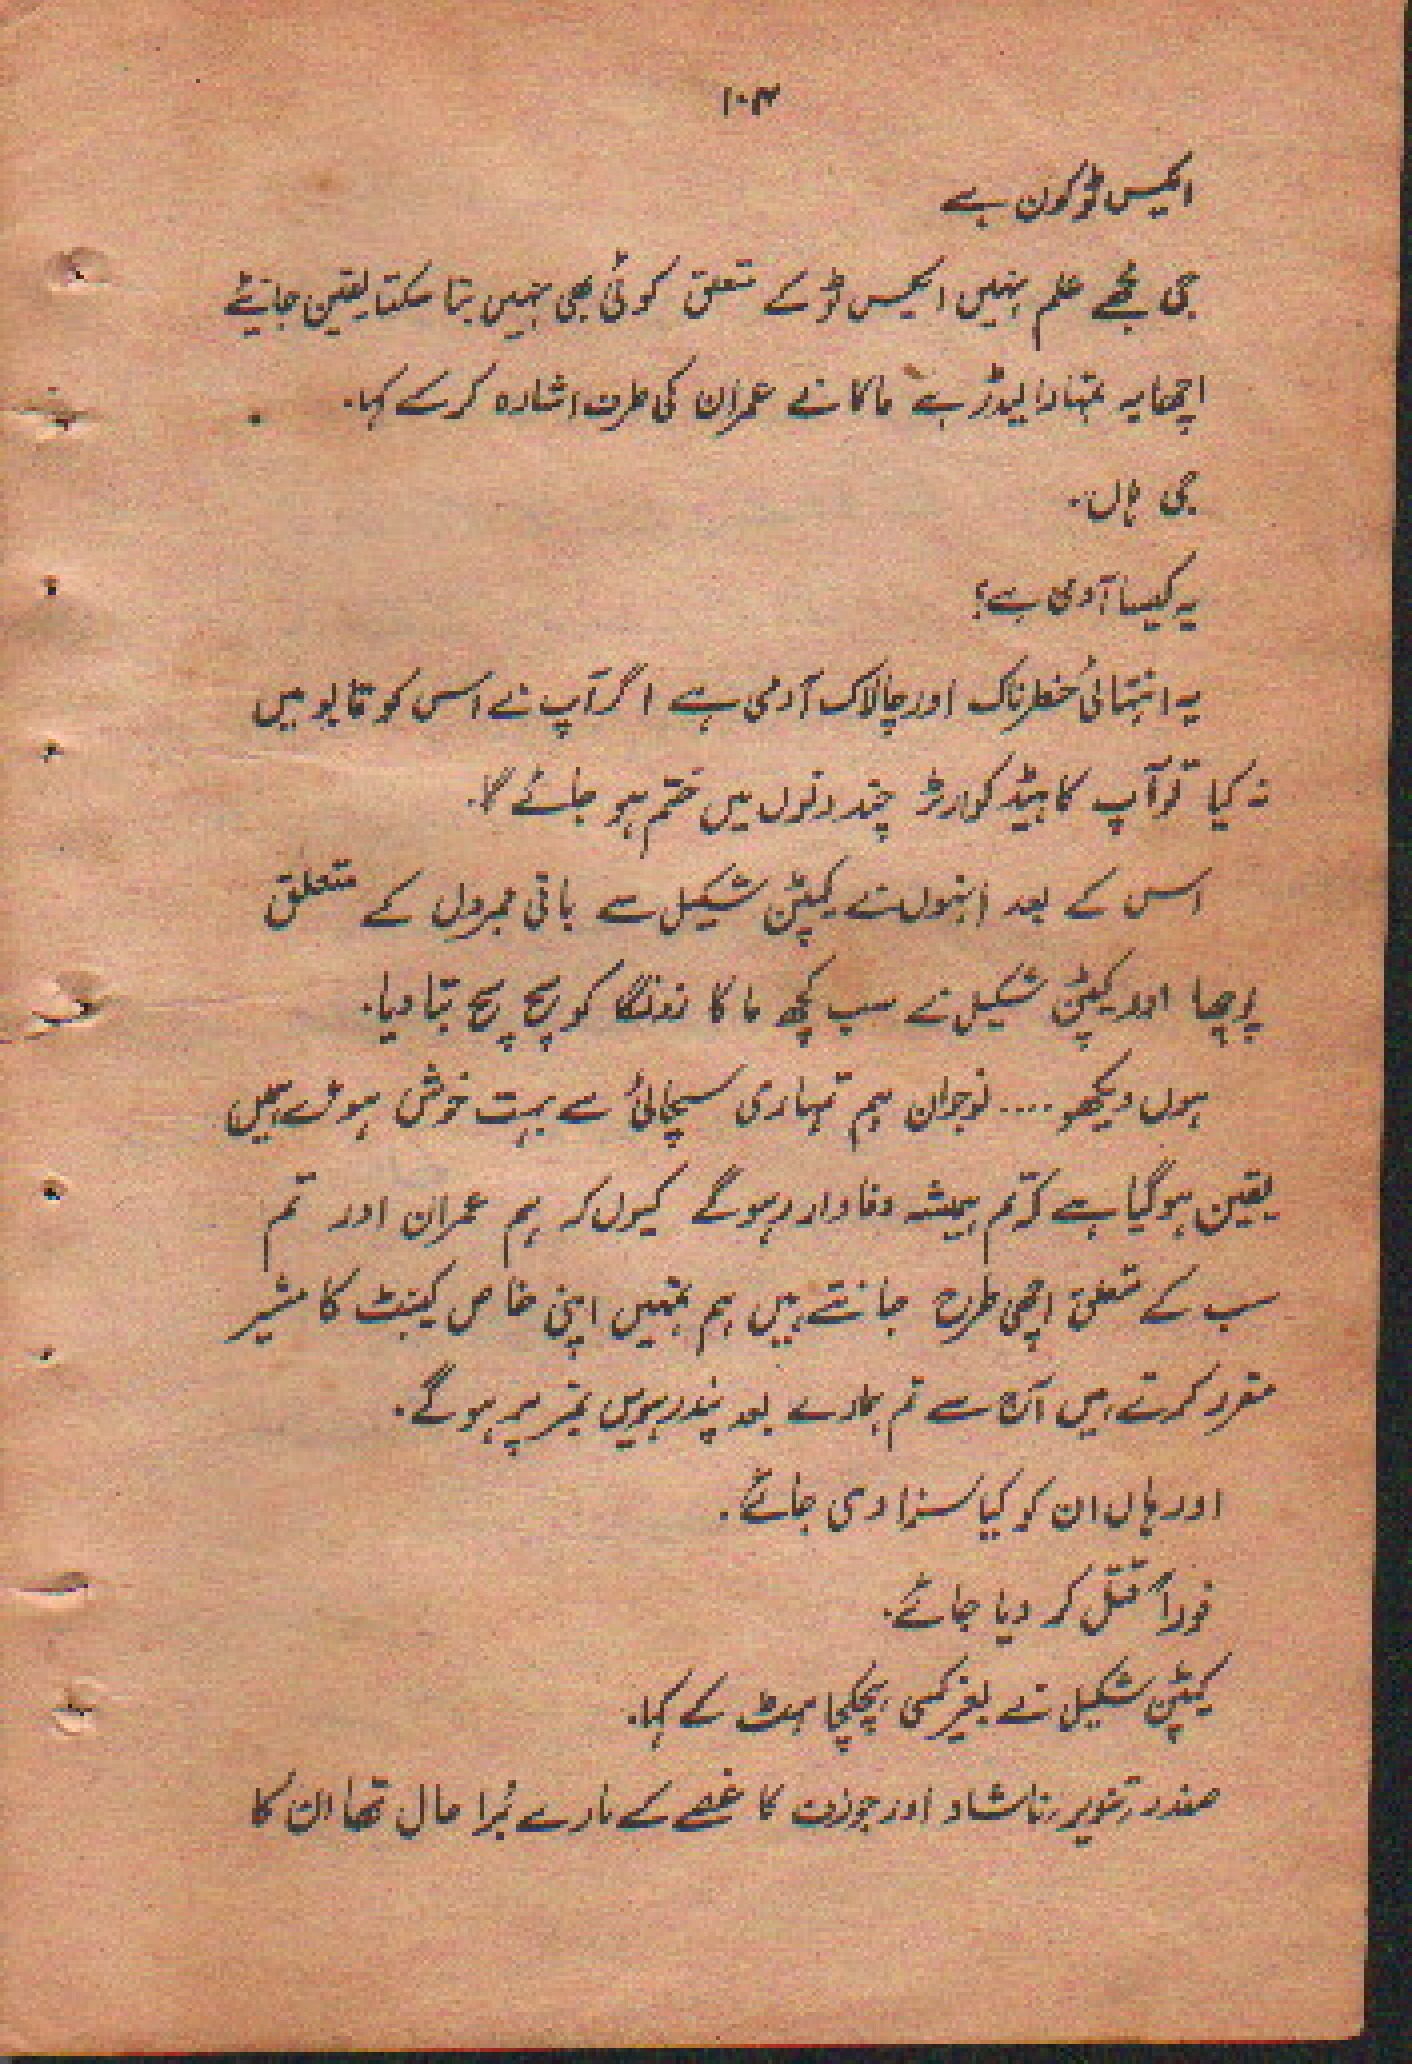 ۱۰۴
ایکس ٹو کون ہے
جی مجھے علم نہیں ایکس ٹو کے متعلق کوئی بھی نہیں بتا سکتا یقین جانیئے
اچھا یہ تمہارا لیڈر ہے ماکا نے عمران کی طرف اشارہ کر کے کہا۔
جی ہاں۔
یہ کیسا آدمی ہے؟
یہ انتہائی خطرناک اور چالاک آدمی ہے اگر آپ نے اس کو قابو میں
نہ کیا تو آپ کا ہیڈ کوارٹر چند دنوں میں ختم ہو جائے گا۔
اس کے بعد انہوں نے کیپٹن شکیل سے باقی ممبروں کے متعلق
پوچھا اور کیپٹن شکیل نے سب کچھ ماکا زونگا کو سچ سچ بتا دیا۔
ہوں دیکھو .... نوجوان ہم تمہاری سچائی سے بہت خوش ہوئے ہمیں
یقین ہو گیا ہے کہ تم ہمیشہ وفادار رہو گے کیوں کہ ہم عمران اور تم
سب کے متعلق اچھی طرح جانتے ہیں ہم تمہیں اپنی خاص کیبنٹ کا مشیر
مقرر کرتے ہیں آج سے تم ہمارے بعد پندرہویں نمبر پر ہو گے۔
اور ہاں ان کو کیا سزا دی جائے۔
فوراً قتل کر دیا جائے۔
کیپٹن شکیل نے بغیر کسی ہچکچاہٹ کے کہا۔
صفدر، تنویر، ناشاد اور جوزف کا غصے کے مارے بُرا حال تھا ان کا